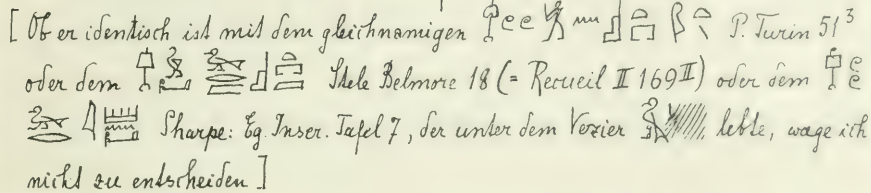 [ Ob er identisch ist mit dem gleichnamigen P. Turin 51³
oder dem Stele Belmore 18 (= Recueil II 169 II) oder dem
Sharpe: Eg. Inscr. Tafel 7, der unter dem Vezier lebte, wage ich
nicht zu entscheiden ]